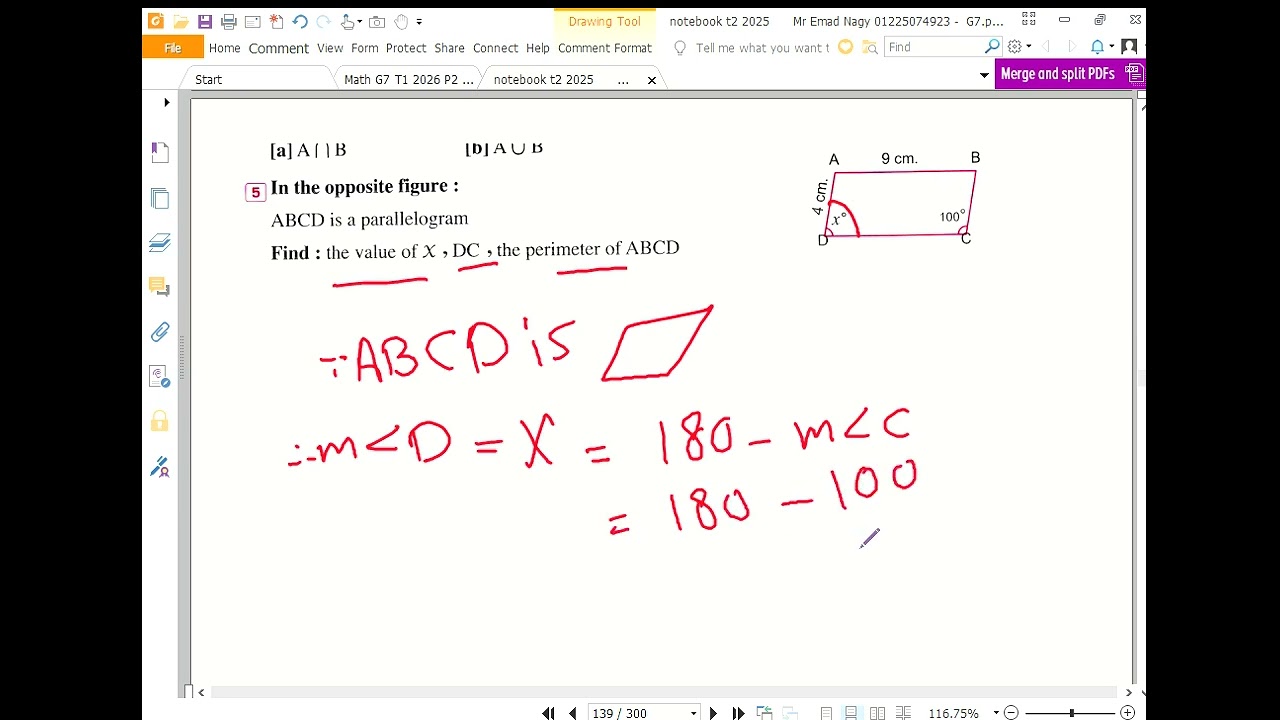 Drawing Tool notebook t2 2025 Mr Emad Nagy 01225074923 - G7.p...
File Home Comment View Form Protect Share Connect Help Comment Format Tell me what you want t Find
Start Math G7 T1 2026 P2 ... notebook t2 2025 ... Merge and split PDFs
[a] A ∩ B [b] A ∪ B
5 In the opposite figure :
ABCD is a parallelogram
Find : the value of X , DC , the perimeter of ABCD
A 9 cm. B
4 cm.
x° 100°
D C
∵ ABCD is
∴ m < D = X = 180 - m < C
= 180 - 100
139 / 300 116.75%